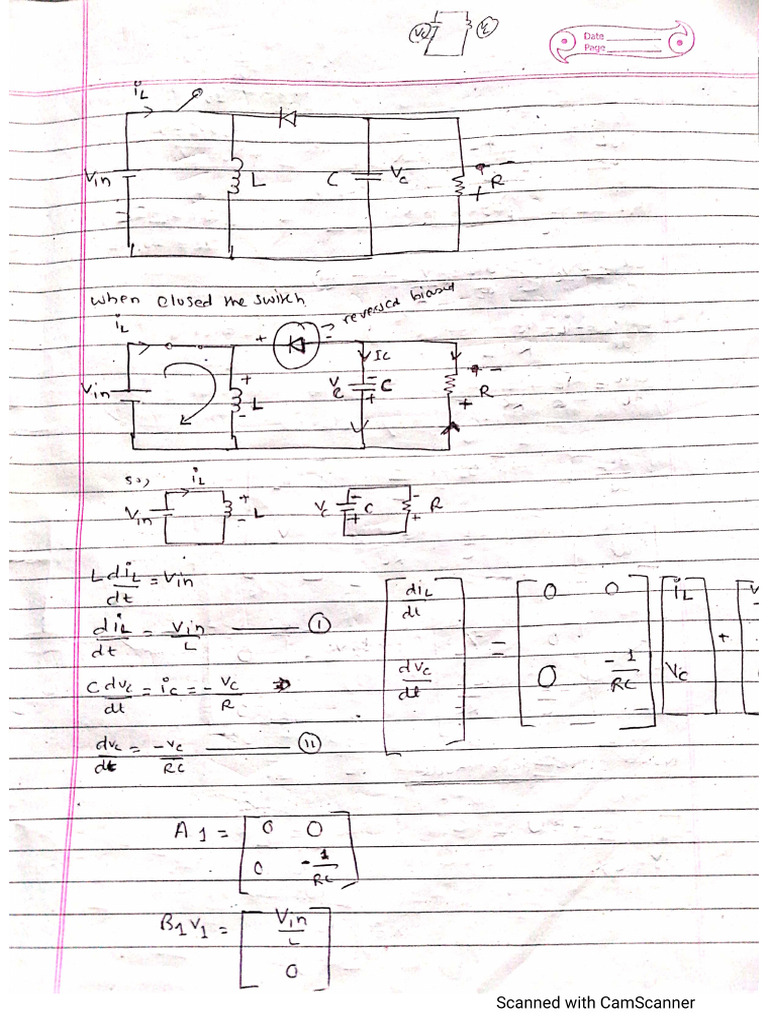 Vc
Date
Page
iL
Vin
L
C
Vc
+ -
R
when closed the switch
⇒ reversed biased
iL
+ -
Ic
Vin
+
L
-
Vc
-
C
+
-
+ R
so,
iL
Vin
+
L
-
Vc
-
C
+
-
R
+
L diL/dt = Vin
diL/dt = Vin/L ——— (I)
C dvc/dt = ic = - vc/R ⇒
dvc/dt = -vc/RC ——— (II)
[diL/dt
dvc/dt] = [0 0
0 -1/RC] [iL
Vc] + [V
A1 = [0 0
0 -1/RC]
B1V1 = [Vin/L
0]
Scanned with CamScanner